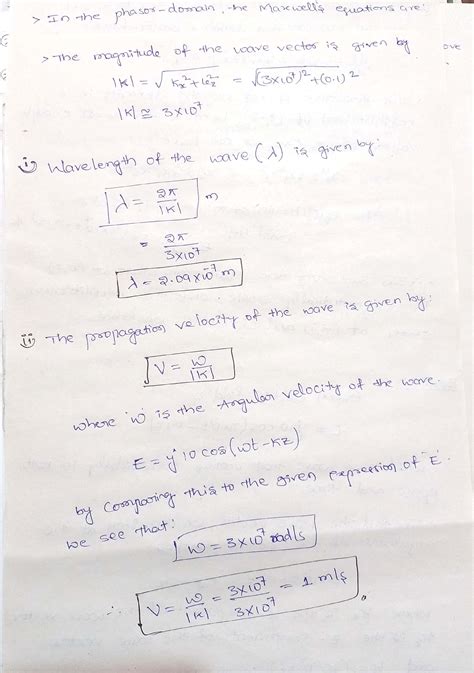 > In the phasor-domain, the Maxwell's equations are:
> The magnitude of the wave vector is given by
ove
|K| = √(Kx² + Kz²) = √((3×10⁷)² + (0.1)²)
|K| ≅ 3×10⁷
i) Wavelength of the wave (λ) is given by:
λ = 2π/|K| m
= 2π/3×10⁷
λ = 2.09×10⁻⁷ m
ii) The propagation velocity of the wave is given by:
V = ω/|K|
where 'ω' is the Angular velocity of the wave.
E = y^ 10 cos(ωt-kz)
by comparing this to the given expression of 'E'.
we see that:
ω = 3×10⁷ rad/s
V = ω/|K| = 3×10⁷/3×10⁷ = 1 m/s.